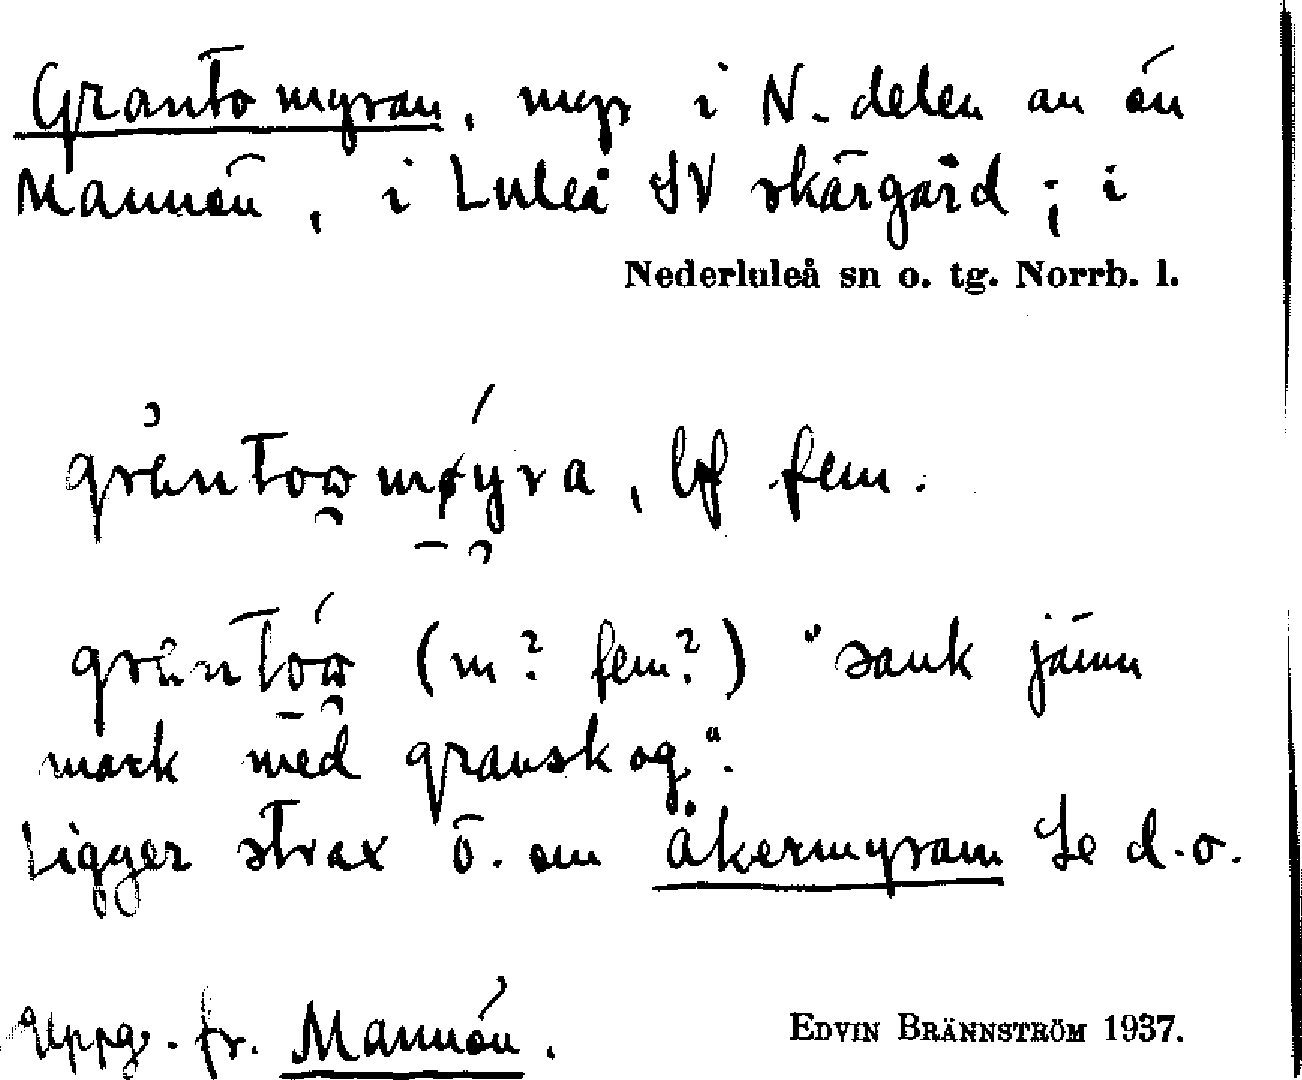 Grantomyran, myr i N. delen av ön
Mannön, i Luleå SV skärgård; i
Nederluleå sn o. tg. Norrb. l.
bf fem.
(m? fem?) "sank jämn
mark med granskog".
Ligger strax ö. om Åkermyran Se d.o.
Uppg. fr. Mannön.
EDVIN BRÄNNSTRÖM 1937.